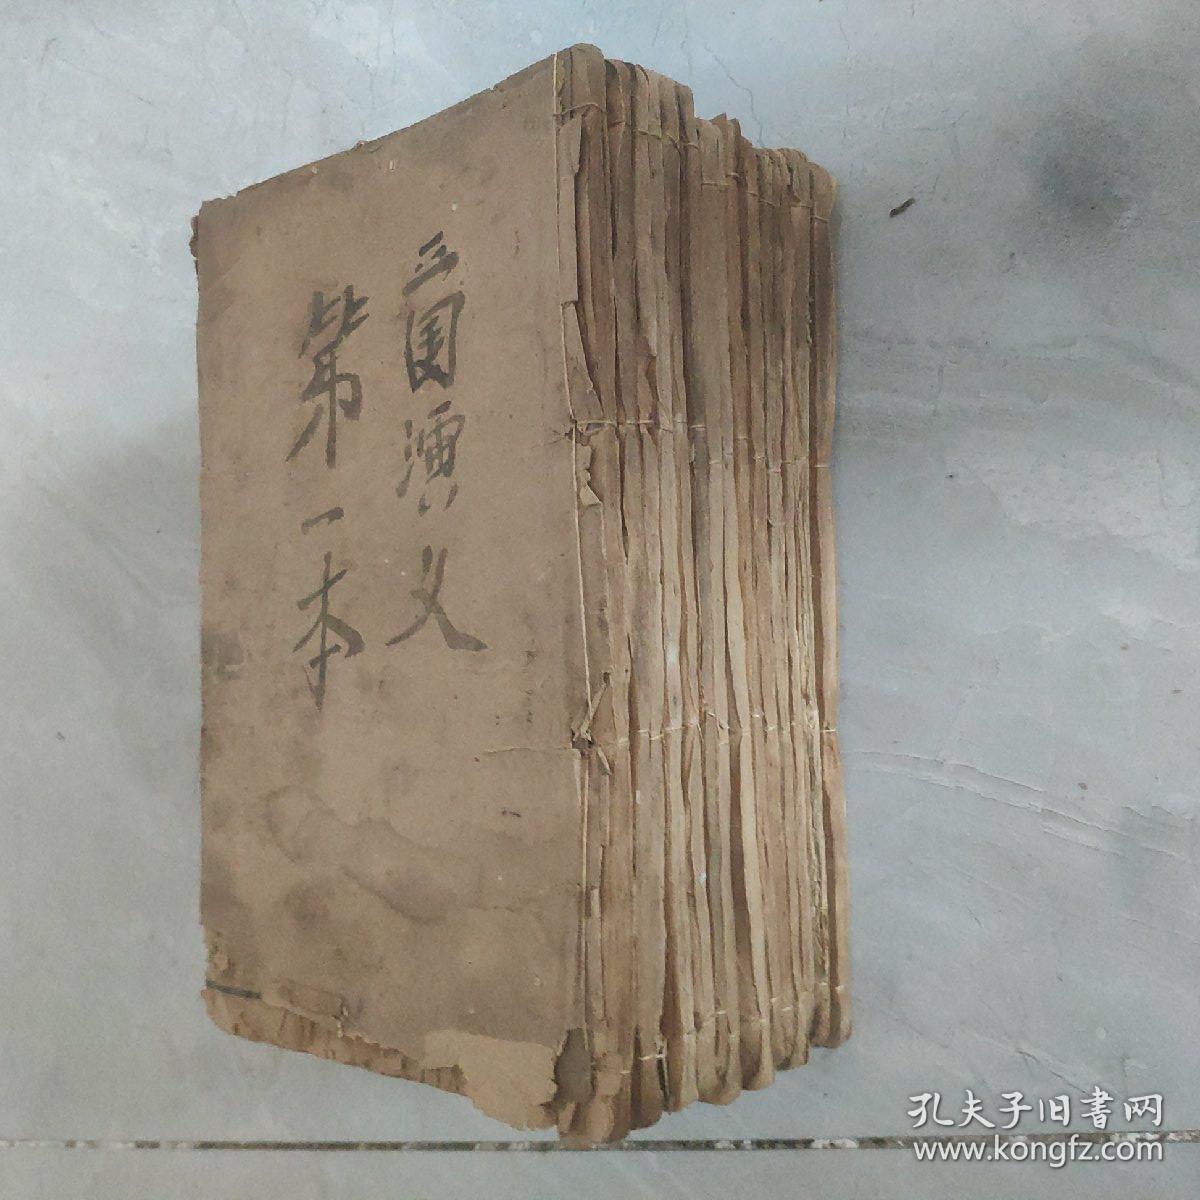 三国演义
第一本
孔夫子旧書网
www.kongfz.com